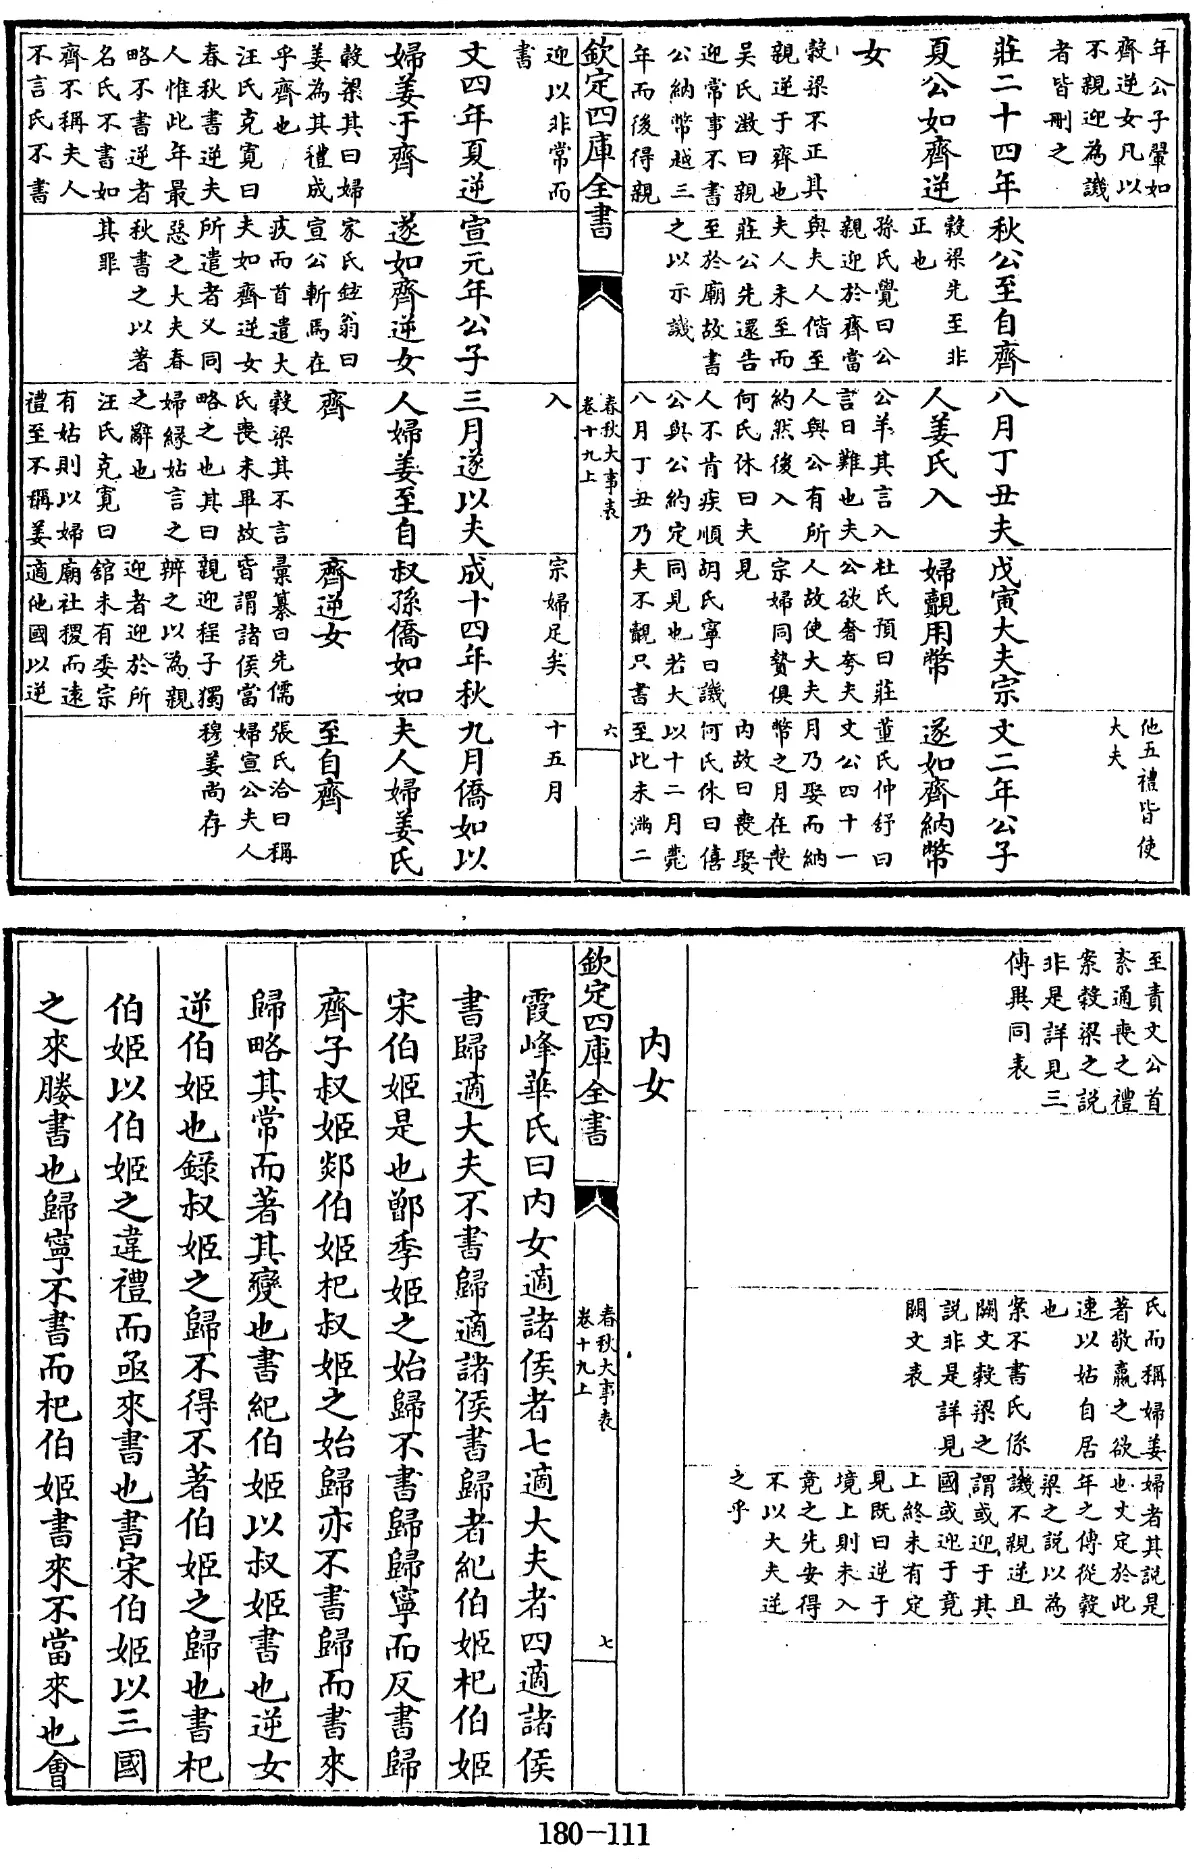 年公子翬如
齊逆女凡以
不親迎為譏
者皆刪之
莊二十四年
夏公如齊逆
女
穀梁不正其
親逆于齊也
吴氏澂曰親
迎常事不書
公納幣越三
年而後得親
秋公至自齊
穀梁先至非
正也
孫氏覺曰公
親迎於齊當
與夫人偕至
夫人未至而
莊公先還告
至於廟故書
之以示譏
八月丁丑夫
人姜氏入
公羊其言入
言曰難也夫
人與公有所
約然後入
何氏休曰夫
人不肯疾順
公與公約定
八月丁丑乃
戊寅大夫宗
婦覿用幣
杜氏預曰莊
公欲奢夸夫
人故使大夫
宗婦同贄俱
見
胡氏寧曰譏
同見也若大
夫不覿只書
他五禮皆使
大夫
文二年公子
遂如齊納幣
董氏仲舒曰
文公四十一
月乃娶而納
幣之月在喪
内故曰喪娶
何氏休曰僖
以十二月薨
至此未滿二
欽定四庫全書
春秋大事表
卷十九上
六
迎以非常而
書
文四年夏逆
婦姜于齊
穀梁其曰婦
姜為其禮成
乎齊也
汪氏克寬曰
春秋書逆夫
人惟此年最
略不書逆者
名氏不書如
齊不稱夫人
不言氏不書
宣元年公子
遂如齊逆女
家氏鉉翁曰
宣公斬焉在
疚而首遣大
夫如齊逆女
所遣者又同
惡之大夫春
秋書之以著
其罪
入
三月遂以夫
人婦姜至自
齊
穀梁其不言
氏喪未畢故
略之也其曰
婦緣姑言之
之辭也
汪氏克寬曰
有姑則以婦
禮至不稱姜
宗婦足矣
成十四年秋
叔孫僑如如
齊逆女
彙纂曰先儒
皆謂諸侯當
親迎程子獨
辨之以為親
迎者迎於所
舘未有委宗
廟社稷而遠
適他國以逆
十五月
九月僑如以
夫人婦姜氏
至自齊
張氏洽曰稱
婦宣公夫人
穆姜尚存
至責文公首
紊通喪之禮
案穀梁之説
非是詳見三
傳異同表
氏而稱婦姜
著敬嬴之欲
速以姑自居
也
案不書氏係
闕文穀梁之
説非是詳見
闕文表
婦者其説是
也文定於此
年之傳從穀
梁之説以為
譏不親逆且
謂或迎于其
國或迎于竟
上終未有定
見既曰逆于
境上則未入
竟之先安得
不以大夫逆
之乎
内女
欽定四庫全書
春秋大事表
卷十九上
七
霞峰華氏曰内女適諸侯者七適大夫者四適諸侯
書歸適大夫不書歸適諸侯書歸者紀伯姬杞伯姬
宋伯姬是也鄫季姬之始歸不書歸歸寧而反書歸
齊子叔姬郯伯姬杞叔姬之始歸亦不書歸而書來
歸略其常而著其變也書紀伯姬以叔姬書也逆女
逆伯姬也錄叔姬之歸不得不著伯姬之歸也書杞
伯姬以伯姬之違禮而亟來書也書宋伯姬以三國
之來媵書也歸寧不書而杞伯姬書來不當來也會
180-111